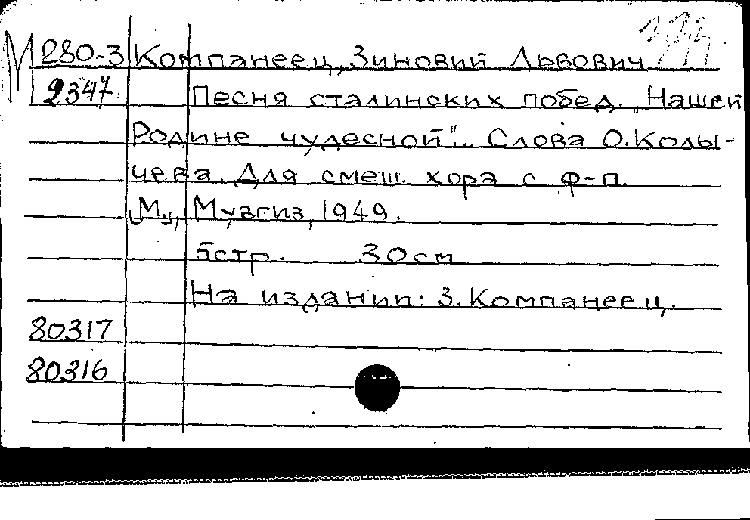 М 280-3 Компанеец, Зиновий Львович
2347 Песня сталинских побед. "Нашей
Родине чудесной"... Слова О. Колы-
чева. Для смеш. хора с ф-п.
М., Музгиз, 1949.
стр. 30 см
На издании: З. Компанеец.
80317
80316